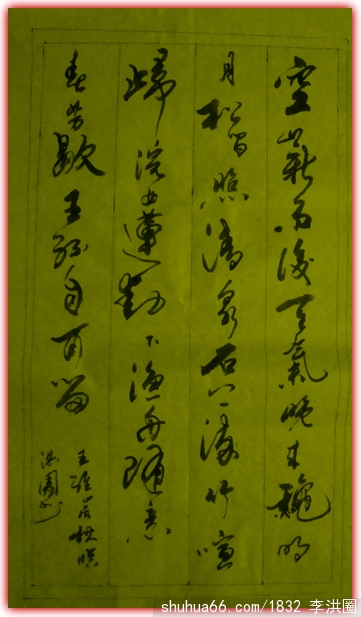 空山新雨後天氣晚来龝明
月松間照清泉石上流竹喧
歸浣女蓮動下漁舟隨意
春芳歇王孫自可留
王維山居秋暝
洪圈书
shuhua66.com/1832 李洪圈